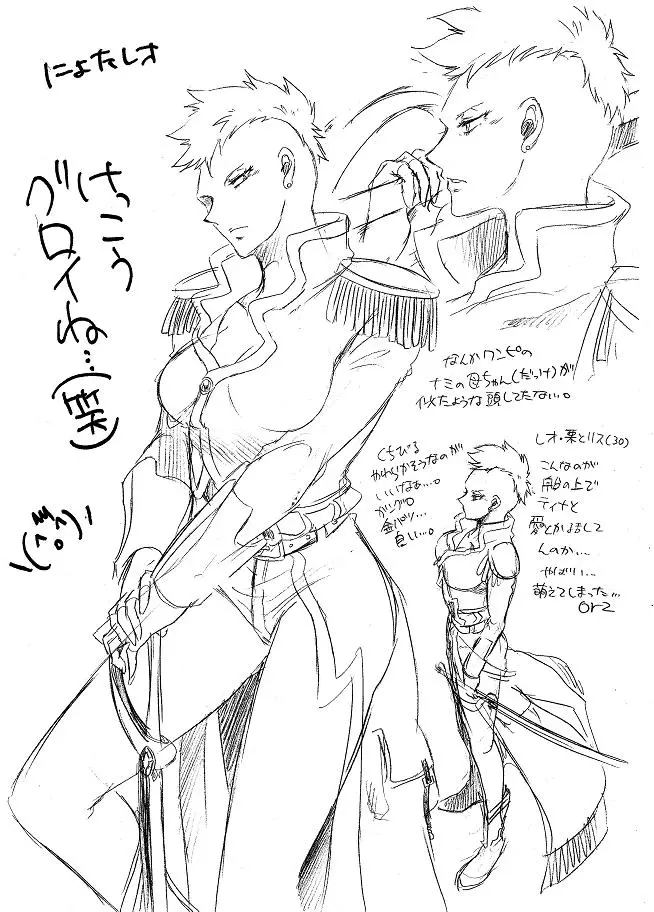 にょたレオ
けっこう
グロイね…(笑)
なんかワンピの
ナミの母ちゃん(だっけ)が
似たような頭してたな…。
くちびる
やわらかそうなのが
いいけなぁ…。
レオ・栗とリス(30)
こんなのが
船の上で
ティナと
愛とか話して
んのか…
やばい…
萌えてしまった…
orz